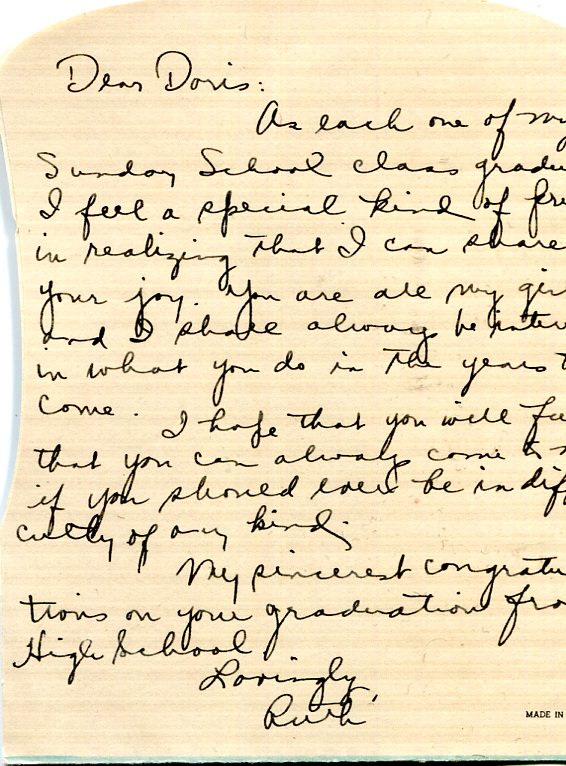 Dear Doris:
As each one of my
Sunday School class gradu
I feel a special kind of pri
in realizing that I can share
your joy. You are all my gir
and I shall always be inter
in what you do in the years t
come.
I hope that you will fee
that you can always come to
if you should ever be in diff
culty of any kind.
My sincerest congratu
tions on your graduation fro
High School
Lovingly,
Ruth
MADE IN